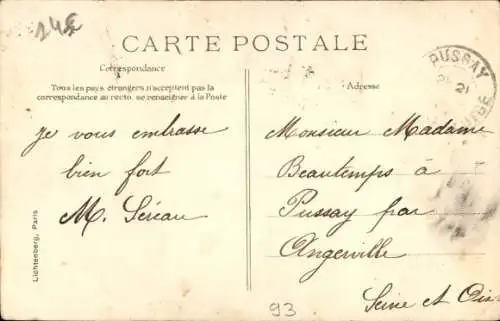 CARTE POSTALE
Correspondance
Tous les pays étrangers n'acceptent pas la
correspondance au recto, se renseigner à la Poste
Je vous embrasse
bien fort
M. Séreau
Lichtenberg, Paris
Adresse
Monsieur Madame
Beautemps à
Pussay par
Angerville
Seine et Oise
PUSSAY
21
93